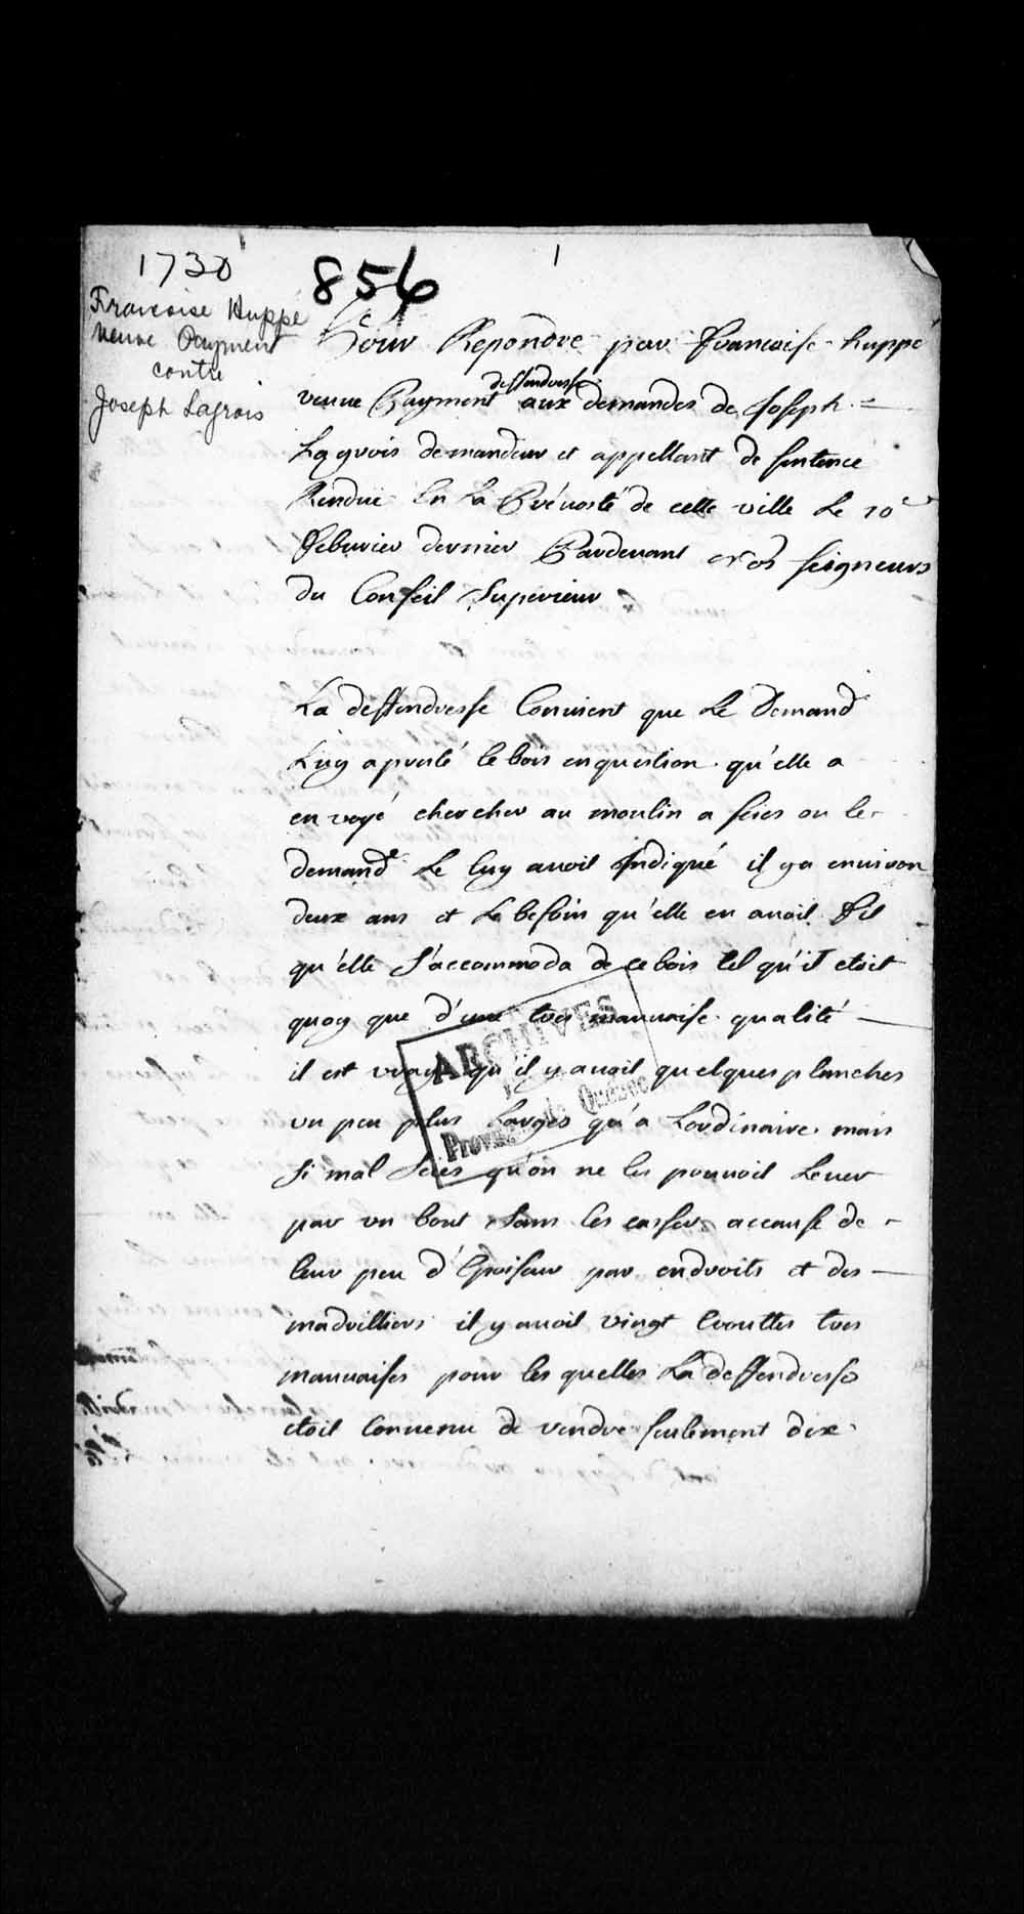 1730
856
1
Francoise Huppé
veuve Payment
contre
Joseph Lagrois
Pour Repondre par francoise huppé
veuve Payment deffendresse aux demandes de Joseph
Lagrois demandeur et appellant de sentence
Rendüe En La Prévosté de cette ville Le 10e
februier dernier Pardevant Nos seigneurs
du Conseil Superieur
La deffendresse Convient que Le Demandr
Luy a presté le bois en question qu'elle a
envoyé chercher au moulin a scies ou le
demandr Le luy avoit Indiqué il y a environ
deux ans et Le besoin qu'elle en avoit fit
qu'elle s'accommoda de ce bois tel qu'il etoit
quoy que d'une tres mauvaise qualité
il est vray qu'il y avoit quelques planches
un peu plus Larges qu'a Lordinaire mais
si mal sciés qu'on ne les pouvoit Lever
par un bout sans les casser accause de
leur peu d'Epoiseur par endroits et des
madrilliers il y avoit vingt Croutles tres
mauvaises pour les quelles La deffendresse
etoit Convenu de rendre seulement dix
ARCHIVES
Province de Québec